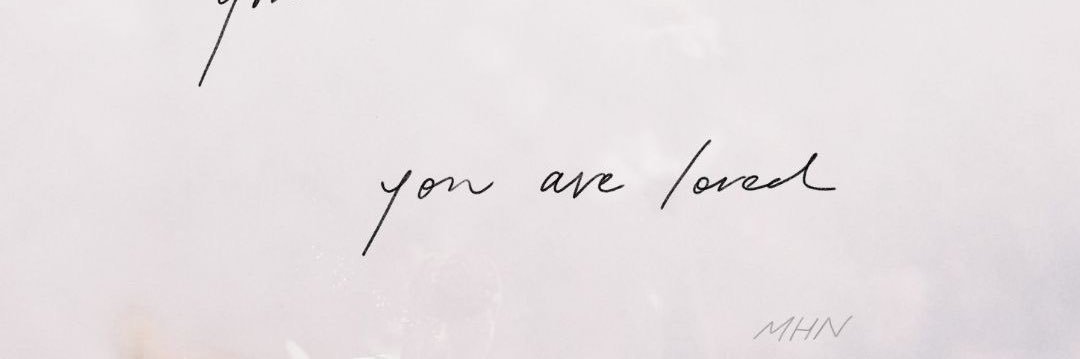 you are loved
MHN